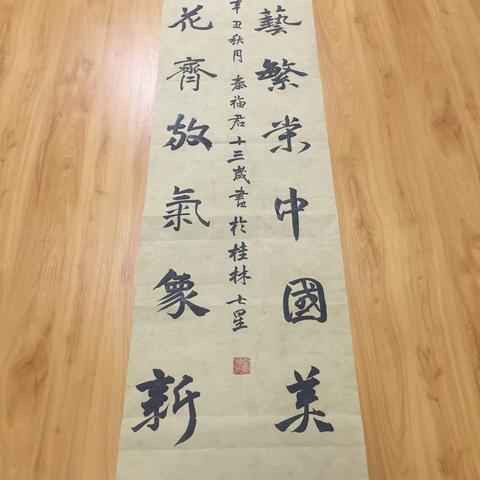 藝繁荣中國美
辛丑秋月 秦福君十三歲書於桂林七星
花齊放氣象新